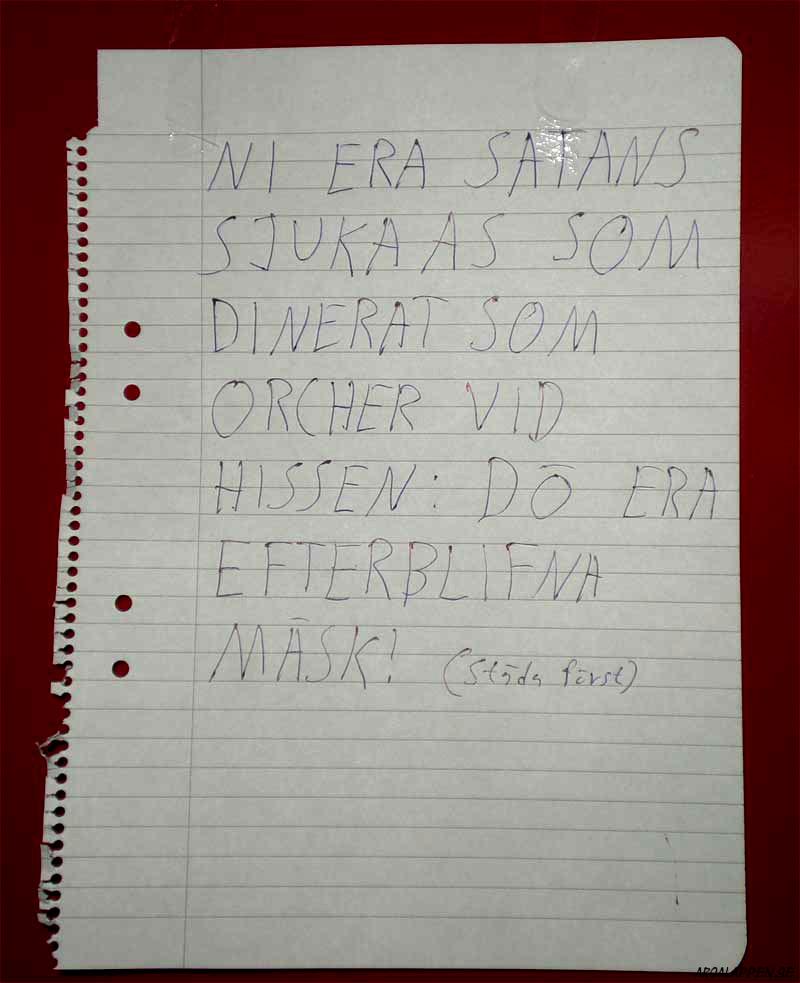 NI ERA SATANS
SJUKA AS SOM
DINERAT SOM
ORCHER VID
HISSEN: DÖ ERA
EFTERBLIFNA
MÄSK! (Städa först)
ARGALAPPEN.SE